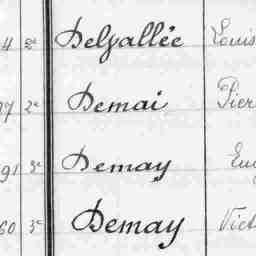 4 2e Delvallée Louis
97 2e Demai Pier
91 3e Demay Eug
60 3e Demay Vict